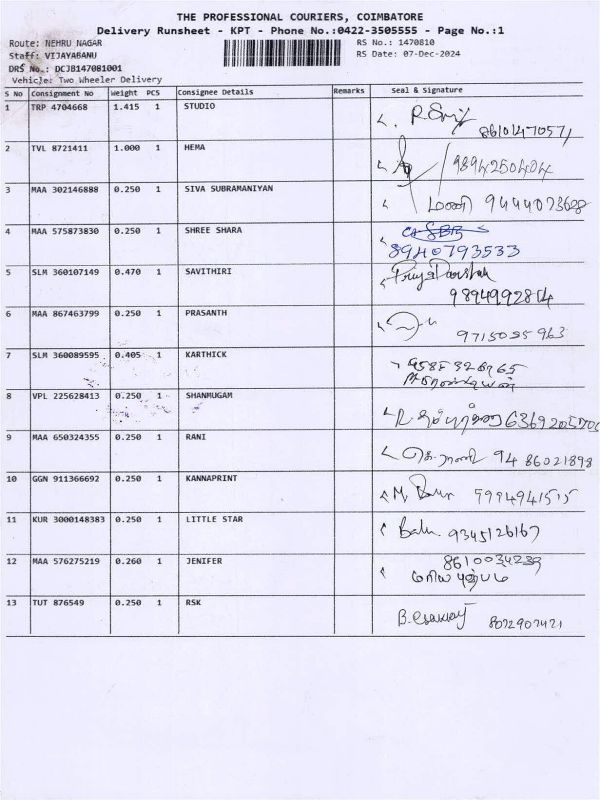 THE PROFESSIONAL COURIERS, COIMBATORE
Delivery Runsheet - KPT - Phone No.:0422-3505555 - Page No.:1
Route: NEHRU NAGAR RS No.: 1470810
Staff: VIJAYABANU RS Date: 07-Dec-2024
DRS No.: DCJB147081001
Vehicle: Two Wheeler Delivery
S No Consignment No Weight PCS Consignee Details Remarks Seal & Signature
1 TRP 4704668 1.415 1 STUDIO
8610147057
2 TVL 8721411 1.000 1 HEMA 9894250404
3 MAA 302146888 0.250 1 SIVA SUBRAMANIYAN மணி
4 MAA 575873830 0.250 1 SHREE SHARA
8940793533
5 SLM 360107149 0.470 1 SAVITHIRI
6 MAA 867463799 0.250 1 PRASANTH
7 SLM 360089595 0.405 1 KARTHICK
8 VPL 225628413 0.250 1 SHANMUGAM
9 MAA 650324355 0.250 1 RANI 94 86021898
10 GGN 911366692 0.250 1 KANNAPRINT
11 KUR 3000148383 0.250 1 LITTLE STAR 9345126167
12 MAA 576275219 0.260 1 JENIFER
8610034239
13 TUT 876549 0.250 1 RSK